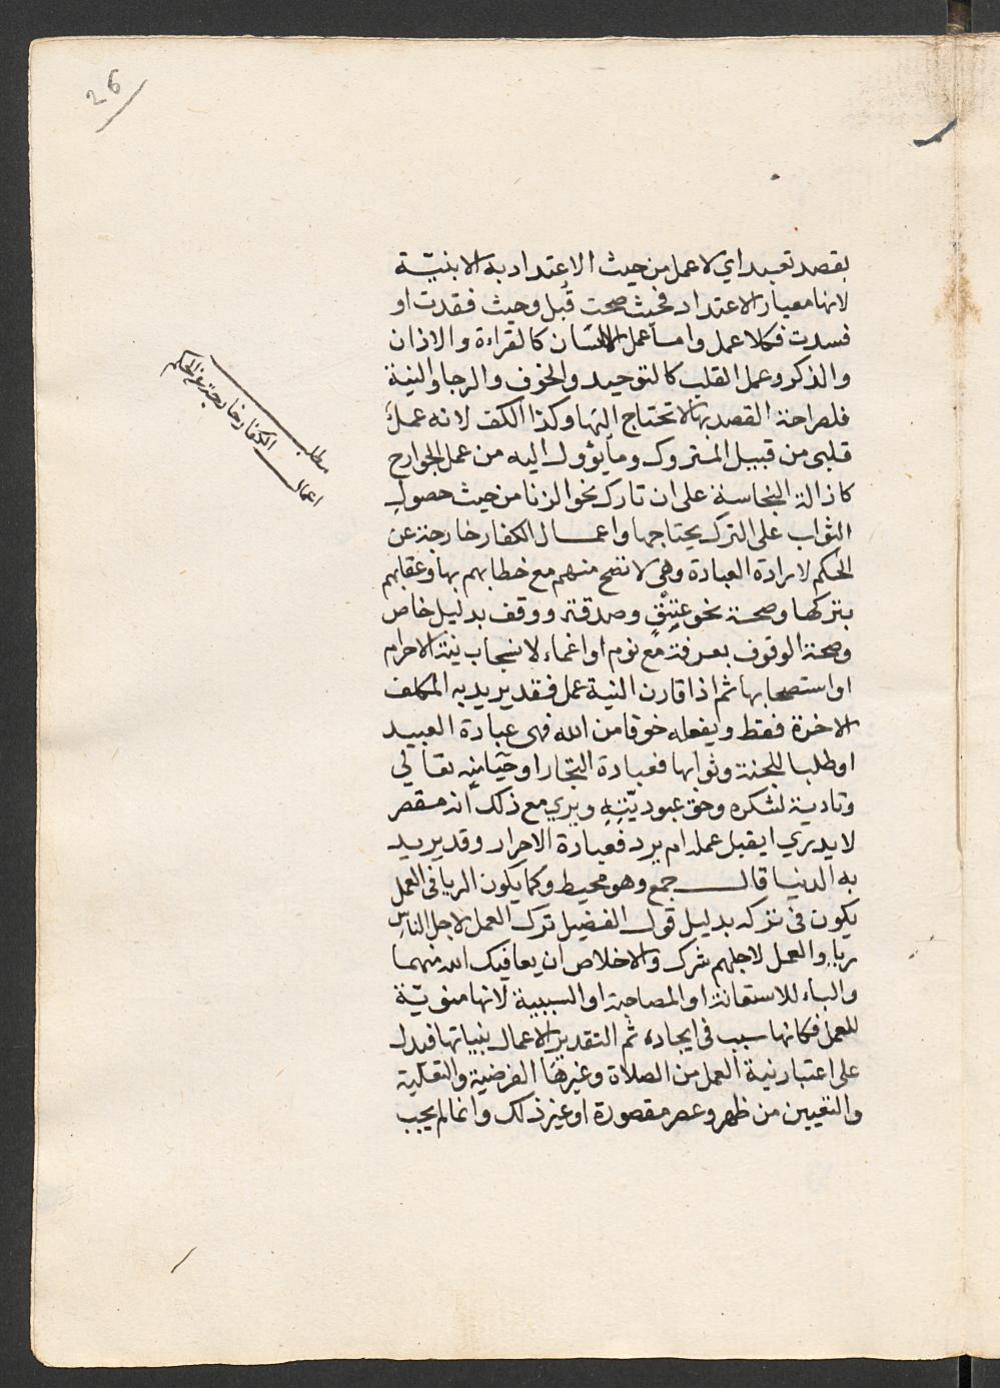 26
بقصد تعبد اي لا عمل من حيث الاعتداد به الا بنيّة
لانها معيار الاعتداد فحيث صحت قُبل وحيث فقدت او
فسدت فكلا عمل واما عمل اللسان كالقراءة والاذان
والذكر وعمل القلب كالتوحيد والخوف والرجا والنية
فلصراحة القصد بها لا تحتاج اليها وكذا الكف لانه عمل
قلبى من قبيل المتروك وما يؤول اليه من عمل الجوارح
كازالة النجاسة على ان تارك نحو الزنا من حيث حصول
الثواب على الترك يحتاجها واعمال الكفار خارجة عن
الحكم لارادة العبادة وهي لا تصح منهم مع خطابهم بها وعقابهم
بتركها وصحة نحو عتقٍ وصدقة ووقف بدليل خاص
وصحة الوقوف بعرفة مع نوم او اغماء لانسحاب نية الاحرام
او استصحابها ثم اذا قارن النية عمل فقد يريد به المكلف
الاخرة فقط ويفعله خوفا من الله فهى عبادة العبيد
او طلبا للجنة وثوابها فعبادة التجار او حيا منه تعالي
وتادية لشكره وحق عبوديّته ويري مع ذلك انه مقصر
لا يدري ايقبل عمله ام يرد فعبادة الاحرار وقد يريد
به الدنيا قال جمع وهو محيط وكما يكون الريا فى العمل
يكون فى تركه بدليل قول الفضيل ترك العمل لاجل الناس
رياء والعمل لاجلهم شرك والاخلاص ان يعافيك الله منهما
والباء للاستعانة او المصاحبة او السببية لانها منويّة
للعمل فكانها سبب فى ايجاده ثم التقدير الاعمال بنياتها فيدل
على اعتبار نية العمل من الصلاة وغيرها الفرضية والنفلية
والتعيين من ظهر وعصر مقصورة او غير ذلك وانما لم يجب
مطلب
اعمال
الكفار خارجة عن الحكم